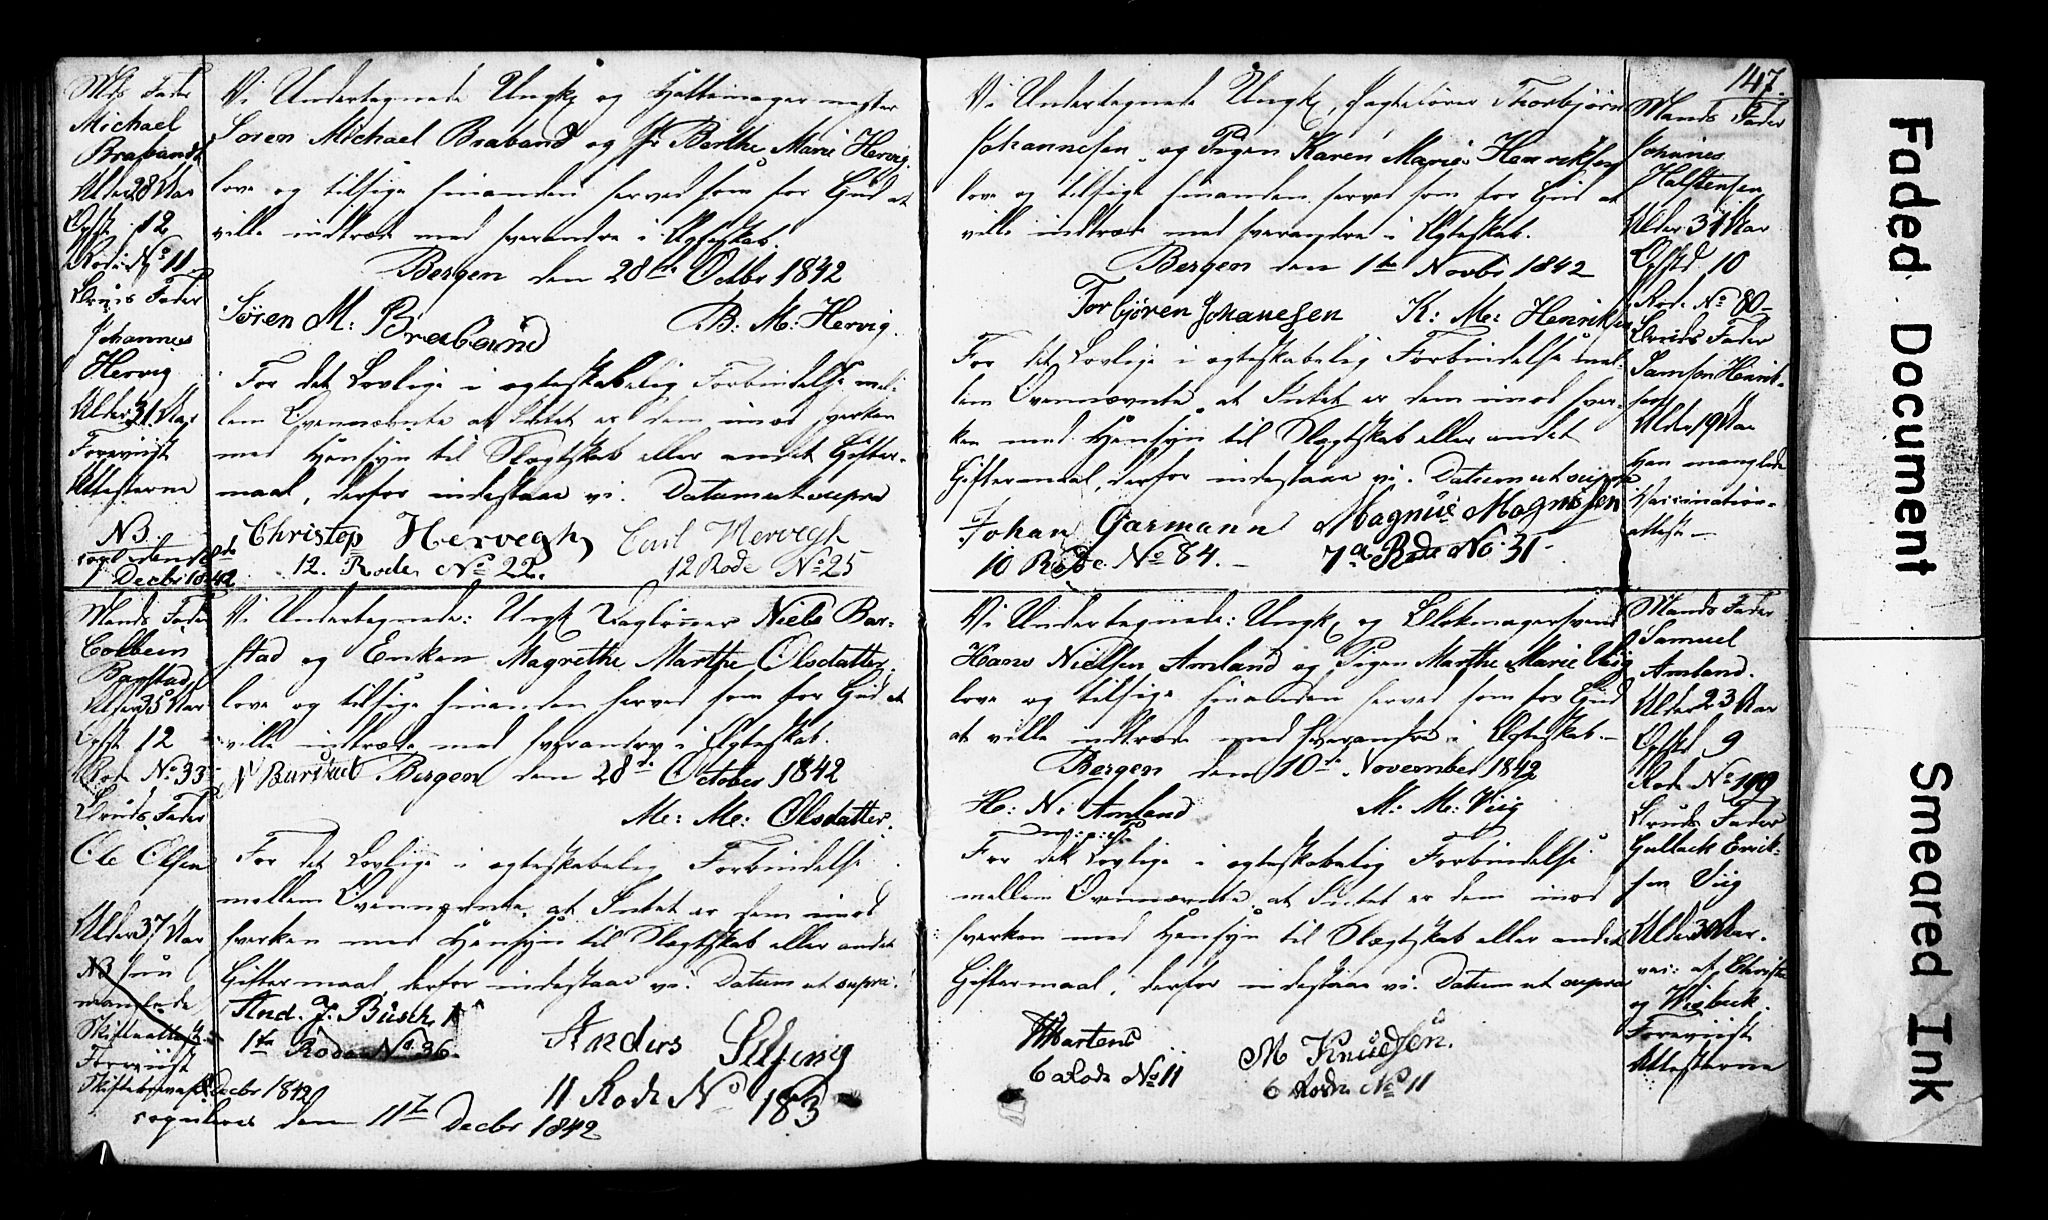 Mds Fader
Michael
Brabandt
Alder 28 Aar
Opst. 12
Rode No 11
Bruds Fader
Johannes
Hervig
Alder 31 Aar
Foreviist
Attesterne
NB.
copul. den
1 Decbr 1842
Vi Undertegnede Ungk. og Hattemager mester
Søren Michael Braband og Pr. Berthe Marie Hervig
love og tilsige hinanden herved som for Gud at
ville indtræde med hverandre i Ægteskab.
Bergen den 28de Octbr 1842
Søren M: Braband B: M: Hervig.
For det Lovlige i ægteskabelig Forbindelse mel-
lem Ovennævnte at Intet er dem imod hverken
med Hensyn til Slægtskab eller andet Gifter-
maal, derfor indestaae vi. Datum ut supra
Christop Hervegh Carl Hervegh
12. Rode No 22. 12 Rode No 25
Mands Fader
Colbein
Barstad
Alder 35 Aar
Opst. 12
Rode No 33
Bruds Fader
Ole Olsen
Alder 37 Aar
NB hun
manglede
Skifteattest
Foreviist
Skiftebrev Decbr 1842
Vi Undertegnede: Ungk. Dagløner Niels Bar-
stad og Enken Magrethe Marthe Olsdatter.
love og tilsige hinanden herved som for Gud at
ville indtræde med hverandre i Ægteskab.
N Barstad Bergen den 28de October 1842
Me: Me: Olsdatter.
For det Lovlige i ægteskabelig Forbindelse
mellem Ovennævnte, at Intet er dem imod
hverken med Hensyn til Slægtskab eller andet
Giftermaal, derfor indestaae vi. Datum ut supra.
And. J. Busch Anders Liljeng
1te Rode No 36. 11 Rode No 183
copuleres den 11te Decbr 1842
147.
Vi Undertegnede Ungk. Thorbjørn
Johannesen og Pigen Karen Marie Henriksen
love og tilsige hinanden herved som for Gud at
ville indtræde med hverandre i Ægteskab.
Bergen den 1te Novbr 1842
Torbjören Johanesen K: M: Henriksen
For det Lovlige i ægteskabelig Forbindelse mel-
lem Ovennævnte, at Intet er dem imod hver-
ken med Hensyn til Slægtskab eller andet
Giftermaal, derfor indestaae vi. Datum ut supra
Johan Garmann Magnus Magnussen
10 Rode No 84. 7de Rode No 31
Mands Fader
Johannes
Halstensen
Alder 31 Aar
Opstd 10
Rode No 80
Bruds Fader
Samson Henrik-
sen
Alder 19 Aar
Han manglede
Vaccinations-
attest
Vi Undertegnede: Ungk. og Blokmagersvend
Hans Nielsen Amland og Pigen Marthe Marie Viig
love og tilsige hinanden herved som for Gud
at ville indtræde med hverandre i Ægteskab.
Bergen den 10de November 1842
H: N: Amland M: M: Viig
m: p: P
For det Lovlige i ægteskabelig Forbindelse
mellem Ovennævnte, at Intet er dem imod
hverken med Hensyn til Slægtskab eller andet
Giftermaal, derfor indestaae vi. Datum ut supra
Martens M Knudsen.
6 Rode No 11 6 Rode No 11
Mands Fader
Samuel
Amland.
Alder 23 Aar
Opstd 9
Rode No 199
Bruds Fader
Gullack Erick-
sen Viig
Alder 30 Aar.
vac: af Christie
og Wisbeck.
Foreviist
Attesterne
Faded Document
Smeared Ink